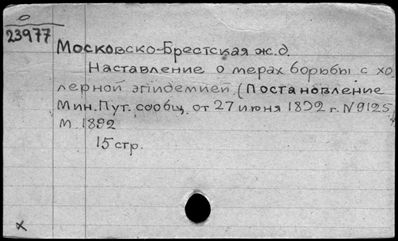 0
23977
Московско-Брестская ж.д.
Наставление о мерах борьбы с хо
лерной эпидемией. (Постановление
Мин. Пут. сообщ. от 27 июня 1892 г. N 9125
М. 1892
15 стр.
x